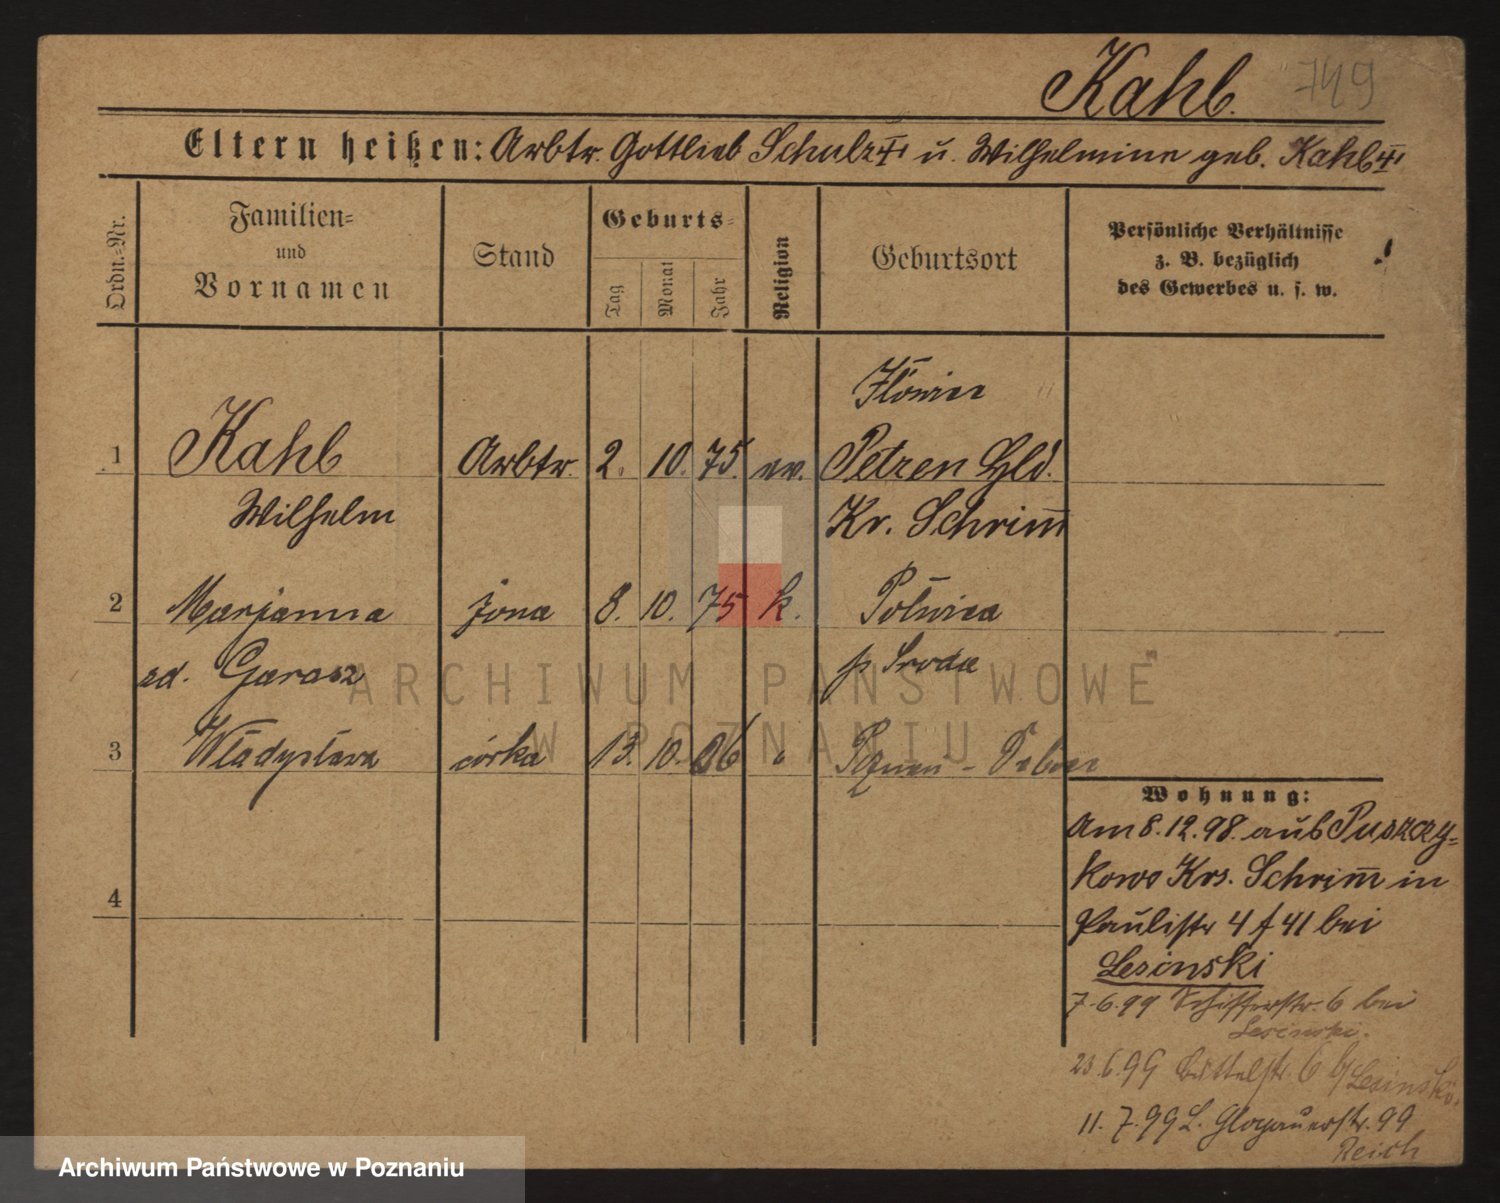 Kahl. 749
Eltern heißen: Arbtr. Gottlieb Schulz u. Wilhelmine geb. Kahl
Ordn.-Nr.
Familien-
und
Vornamen
Stand
Geburts-
Tag
Monat
Jahr
Religion
Geburtsort
Persönliche Verhältnisse
z. B. bezüglich
des Gewerbes u. s. w.
1 Kahl Arbtr. 2. 10. 75. ev. Petzen Hld.
Wilhelm Kr. Schrim̄
2 Marjanna żona 8. 10. 75 k.
zd. Garasz p Środa
3 Władysława córka 13. 10. 06 "
4
Wohnung:
Am 8.12.98. aus Puszczy-
kowo Krs. Schrim̄ in
Paulistr 4 f 41 bei
Lesinski
7.6.99 Schifferstr. 6 bei
Lesinski.
23.6.99 Büttelstr. 6 b/Lesinski.
11.7.99 L. Glogauerstr. 99
Reich
ARCHIWUM PAŃSTWOWE
W POZNANIU
Archiwum Państwowe w Poznaniu